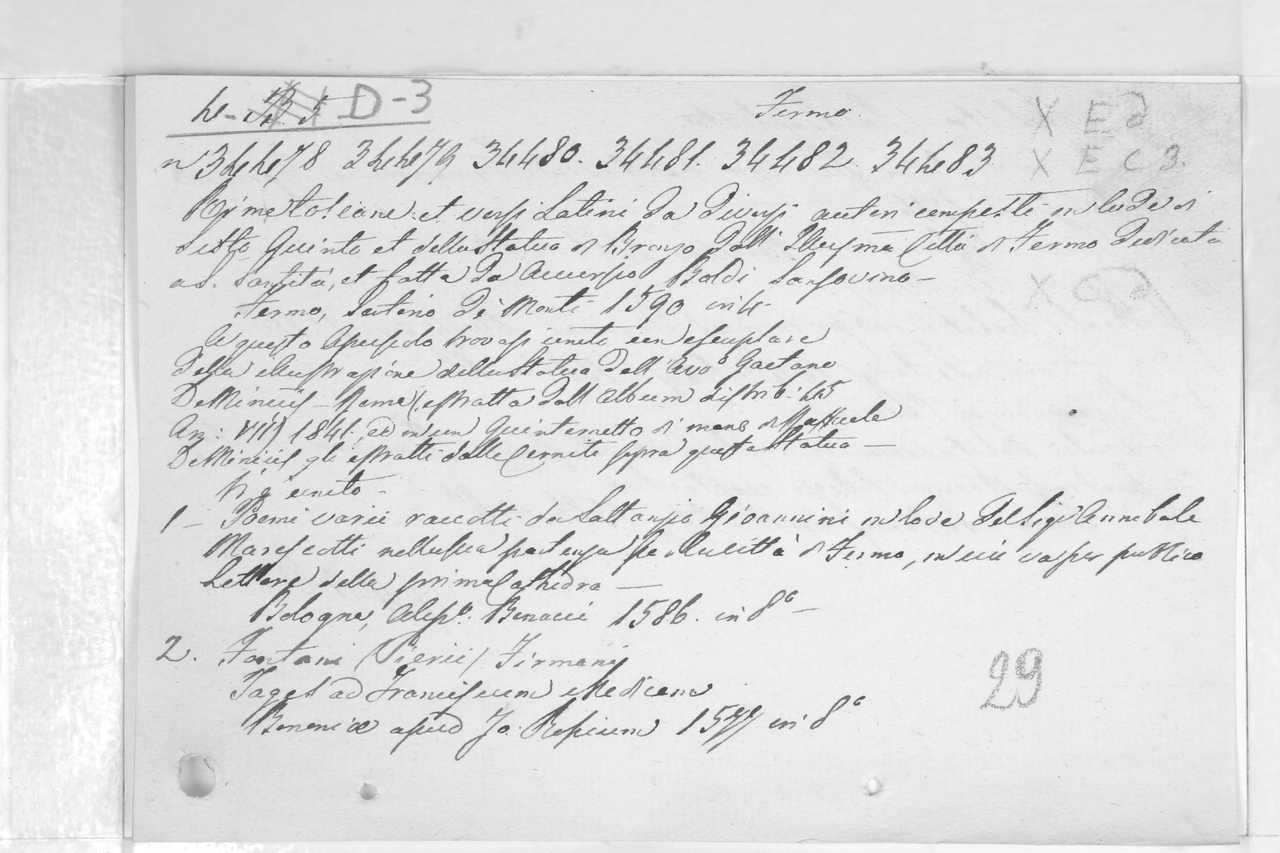 4- D-3
Fermo.
X E d
n° 34478 34479 34480. 34481. 34482. 34483
X E C 3.
Rime toscane et versi Latini da diversi auteri composti in lode di
Sisto Quinto et della statua di Bronzo dall' Illusma Città di Fermo dedicata
a S. Santità, et fatta da Accursio Baldi Sansovino—
X
Fermo, Sertorio De Monti 1590 in 4
A questo Opuscolo trovasi unito un esemplare
della illustrazione della statua dell' Avo Gaetano
DeMinicis - Roma (estratta dall' Album distrib: 45
An: VIII) 1841. ed in un Quinternetto di mano di Raffaele
DeMinicis gli estratti dalle Cernite sopra questa statua —
Vi è unito -
1 - Poemi varii raccolti da Lattanzio Gioannini in lode del Sigr Annibale
Marescotti nella sua partenza per la città di Fermo, in cui va per publico
Lettore della prima Cathedra —
Bologna, Aless°. Benacci 1586. in 8° —
2. Fontani (Pierii) Firmani
Tages ad Franciscum Medicem
Bononiæ apud Jo: Rossium 1577 in 8°
29